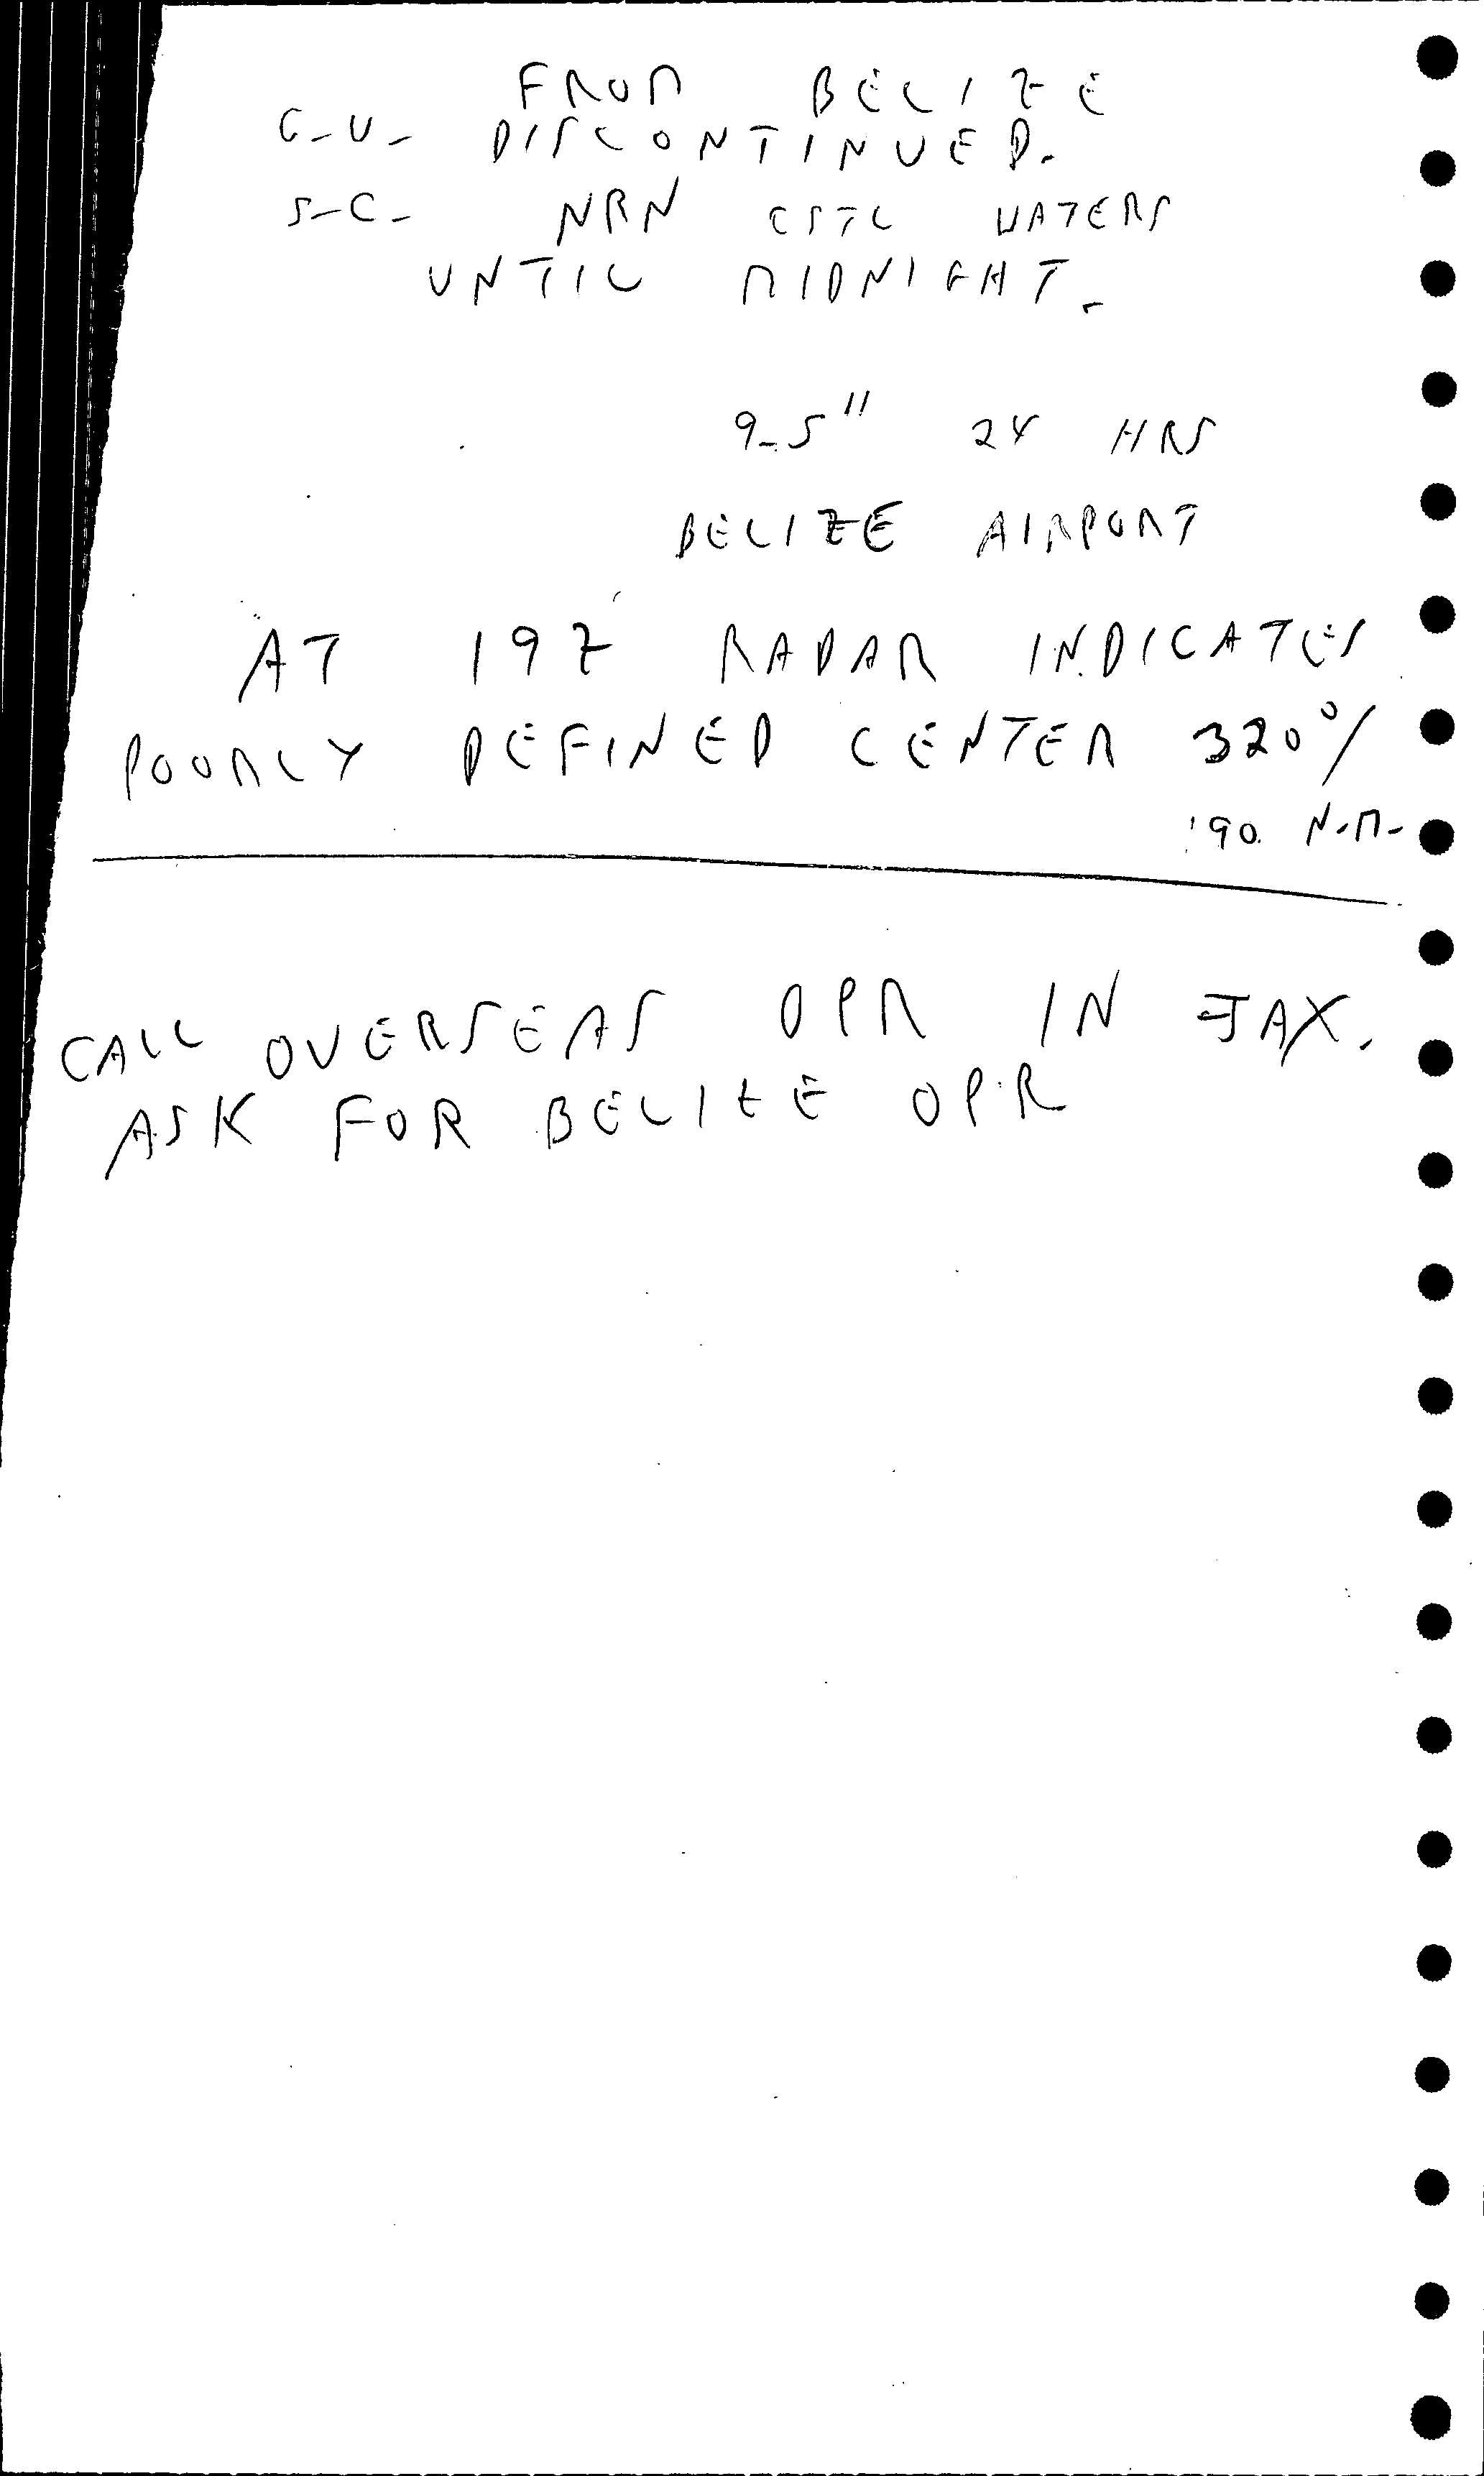 FROM BELIZE
G.W. DISCONTINUED.
S.C. NRN CSTL WATERS
UNTIL MIDNIGHT.
9.5" 24 HRS
BELIZE AIRPORT
AT 19Z RADAR INDICATES
POORLY DEFINED CENTER 320°/
90 N.M.
CALL OVERSEAS OPR IN JAX.
ASK FOR BELIZE OPR